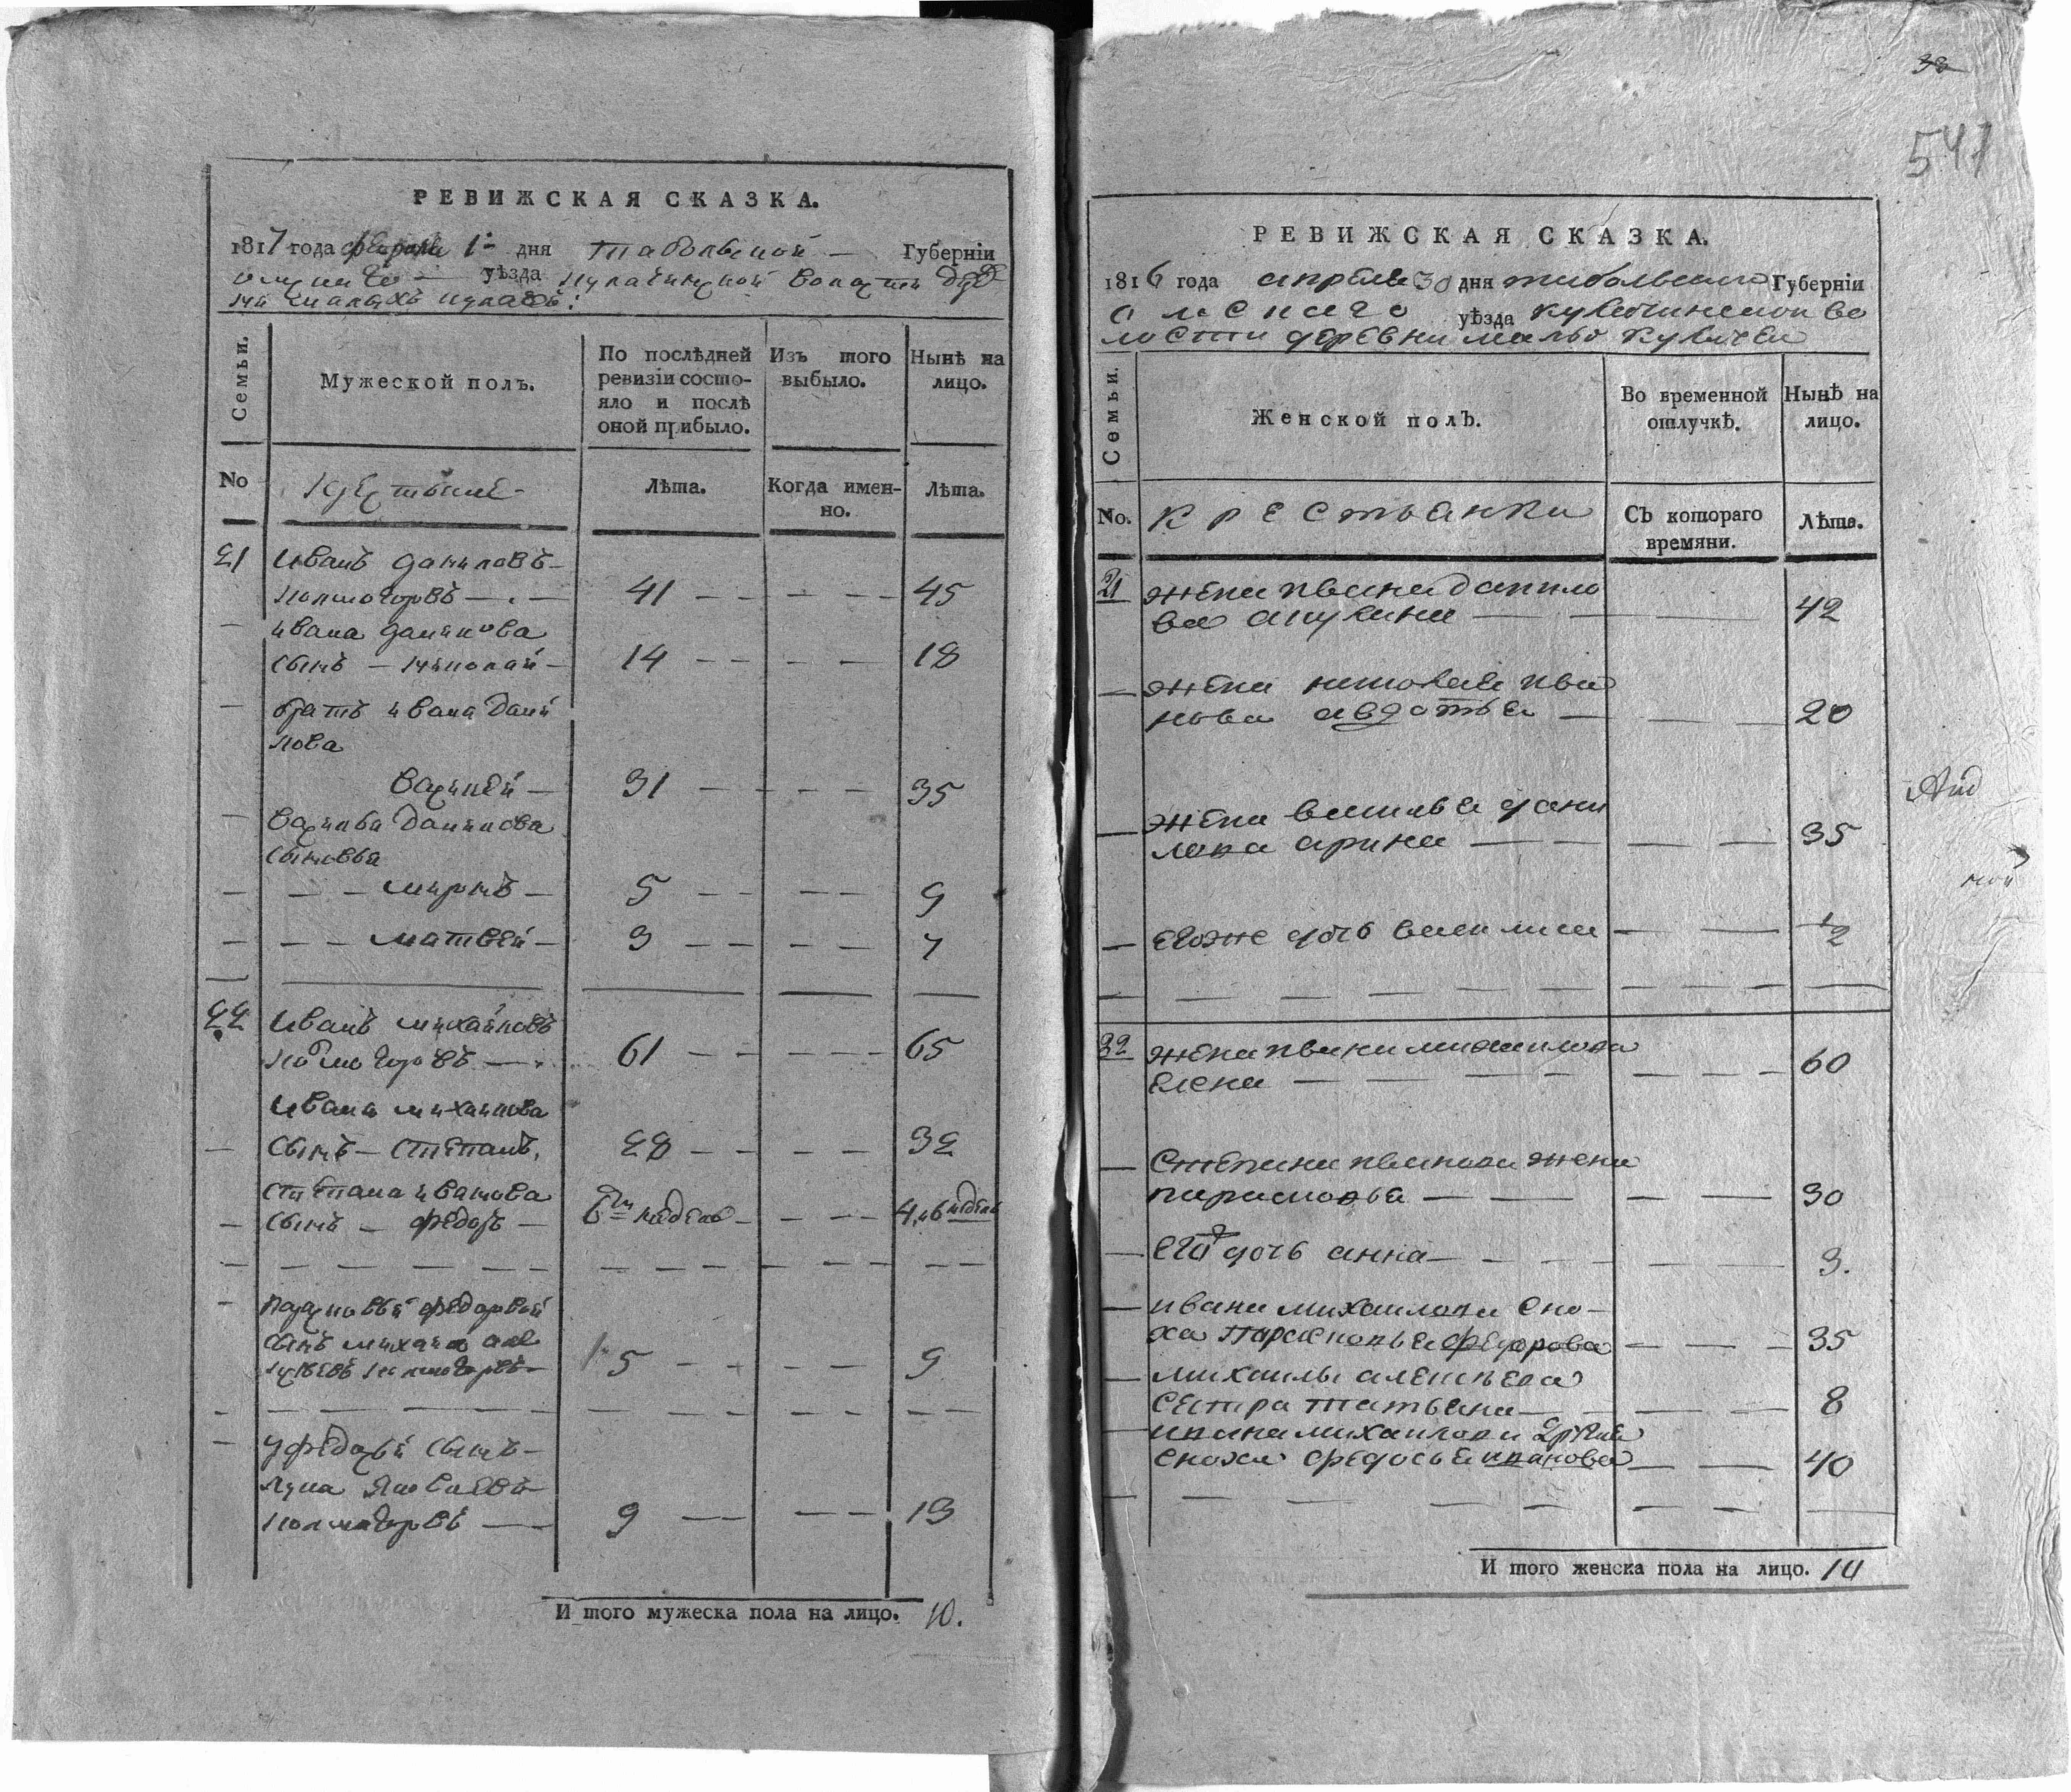 РЕВИЖСКАЯ СКАЗКА.
1817 года февраля 1 дня Тобольской Губерніи
уѣзда волости
Семьи.
Мужеской полъ.
По послѣдней ревизіи состояло и послѣ оной прибыло.
Изъ того выбыло.
Нынѣ на лицо.
No
Лѣта.
Когда имен-
но.
Лѣта.
21 Иванъ даниловъ
41 — — — — 45
ивана данилова
сынъ — николай — 14 — — — — 18
братъ ивана дани
лова
василей — 31 — — — — 35
василья данилова
сыновья
— — — миронъ — 5 — — — — 9
— — — матвей — 3 — — — — 7
22 Иванъ михайловъ
61 — — — — 65
Ивана михаилова
сынъ — степанъ. 28 — — — — 32
степана иванова
сынъ — федоръ — 6 недель — — — 4, и 6 недель
сынъ михаила
5 — — — — 9
сынъ
лука
9 — — — — 13
И того мужеска пола на лицо. 10.
38
541
РЕВИЖСКАЯ СКАЗКА.
1816 года апреля 30 дня тобольской Губерніи
омскаго уѣзда во
лости деревни мало
Семьи.
Женской полъ.
Во временной отлучкѣ.
Нынѣ на лицо.
No.
крестьянки
Съ котораго
времяни.
Лѣта.
21 жена ивана данило
ва акулина — — — 42
— жена николая ива
нова авдотья — — — 20
— жена василья дани
лова арина — — — — 35
— егоже дочь василиса — — — 1/2
22 жена ивана михаилова
елена — — — — — — — 60
— степана иванова жена
парасковья — — — — 30
— его дочь анна — — — — — 3.
— ивана михаилова сно-
ха парасковья федорова — — — 35
— михаилы алексеева
сестра татьяна — — — — 8
— ивана михаилова другая
сноха федосья иванова — — — 40
И того женска пола на лицо. 10